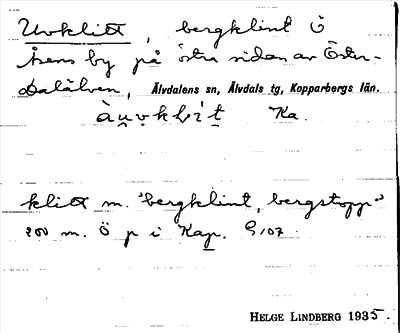 Uvklitt, bergklint Ö
Åsens by på östra sidan av Öster-
dalälven, Älvdalens sn, Älvdals tg, Kopparbergs län.
Ka.
klitt m. "bergklint, bergstopp"
200 m. Ö p i Kap. G 107
HELGE LINDBERG 1935.